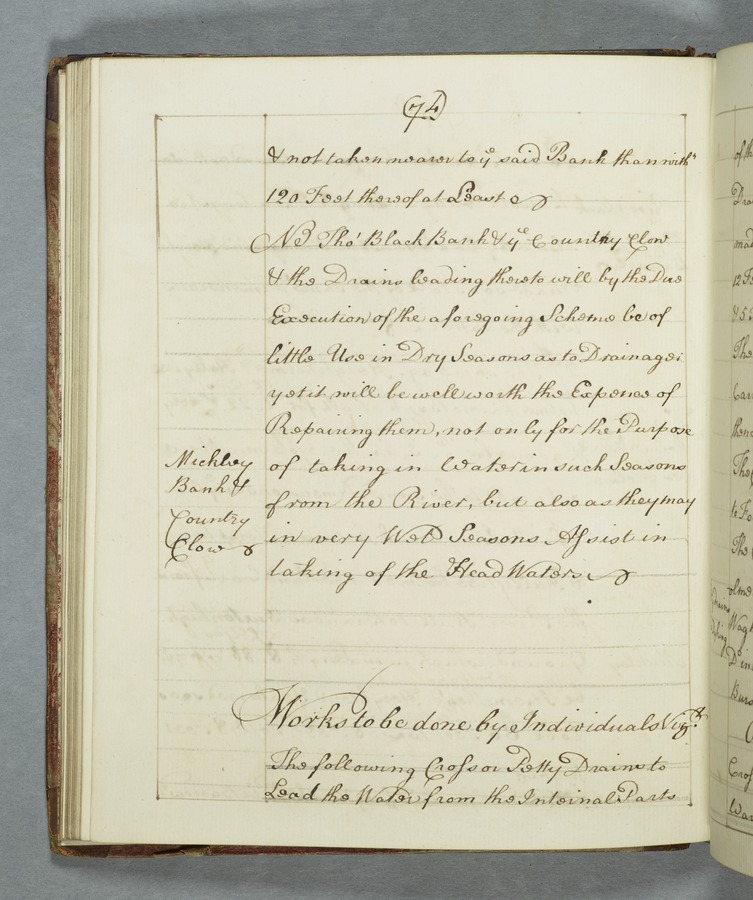 (74)
& not taken nearer to ye said Bank than with
120 Feet thereof at Least
NB Tho' Black Bank & ye Country Clow
& the Drains leading thereto will by the Due
Execution of the aforegoing Scheme be of
little Use in Dry Seasons as to Drainage:
yet it will be well worth the Expence of
Repairing them, not only for the Purpose
of taking in Water in such Seasons
from the River, but also as they may
in very Wet Seasons Assist in
taking of the Head Waters
Mickley
Bank &
Country
Clow
Works to be done by Individuals Vizt.
The following Cross or Petty Drains to
Lead the Water from the Internal Parts